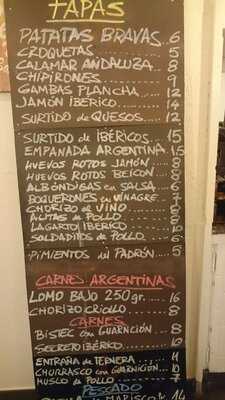 TAPAS
PATATAS BRAVAS 6
CROQUETAS 5
CALAMAR ANDALUZA 8
CHIPIRONES 9
GAMBAS PLANCHA 12
JAMÓN IBERICO 14
SURTIDO de QUESOS 12
SURTIDO de IBÉRICOS 15
EMPANADA ARGENTINA 15
HUEVOS ROTOS JAMÓN 8
HUEVOS ROTOS BEICON 8
ALBÓNDIGAS en SALSA 6
BOQUERONES en VINAGRE 7
CHORIZO al VINO 8
ALITAS de POLLO 8
LAGARTO IBERICO 10
SOLDADITOS de POLLO 6
PIMIENTOS del PADRÓN 5
CARNES ARGENTINAS
LOMO BAJO 250gr. 16
CHORIZO CRIOLLO 8
CARNES
BISTEC con GUARNICIÓN 8
SECRETO IBÉRICO 10
ENTRAÑA de TERNERA 11
CHURRASCO con GUARNICIÓN 10
MUSLO de POLLO 7
PESCADO
MARISCO 14